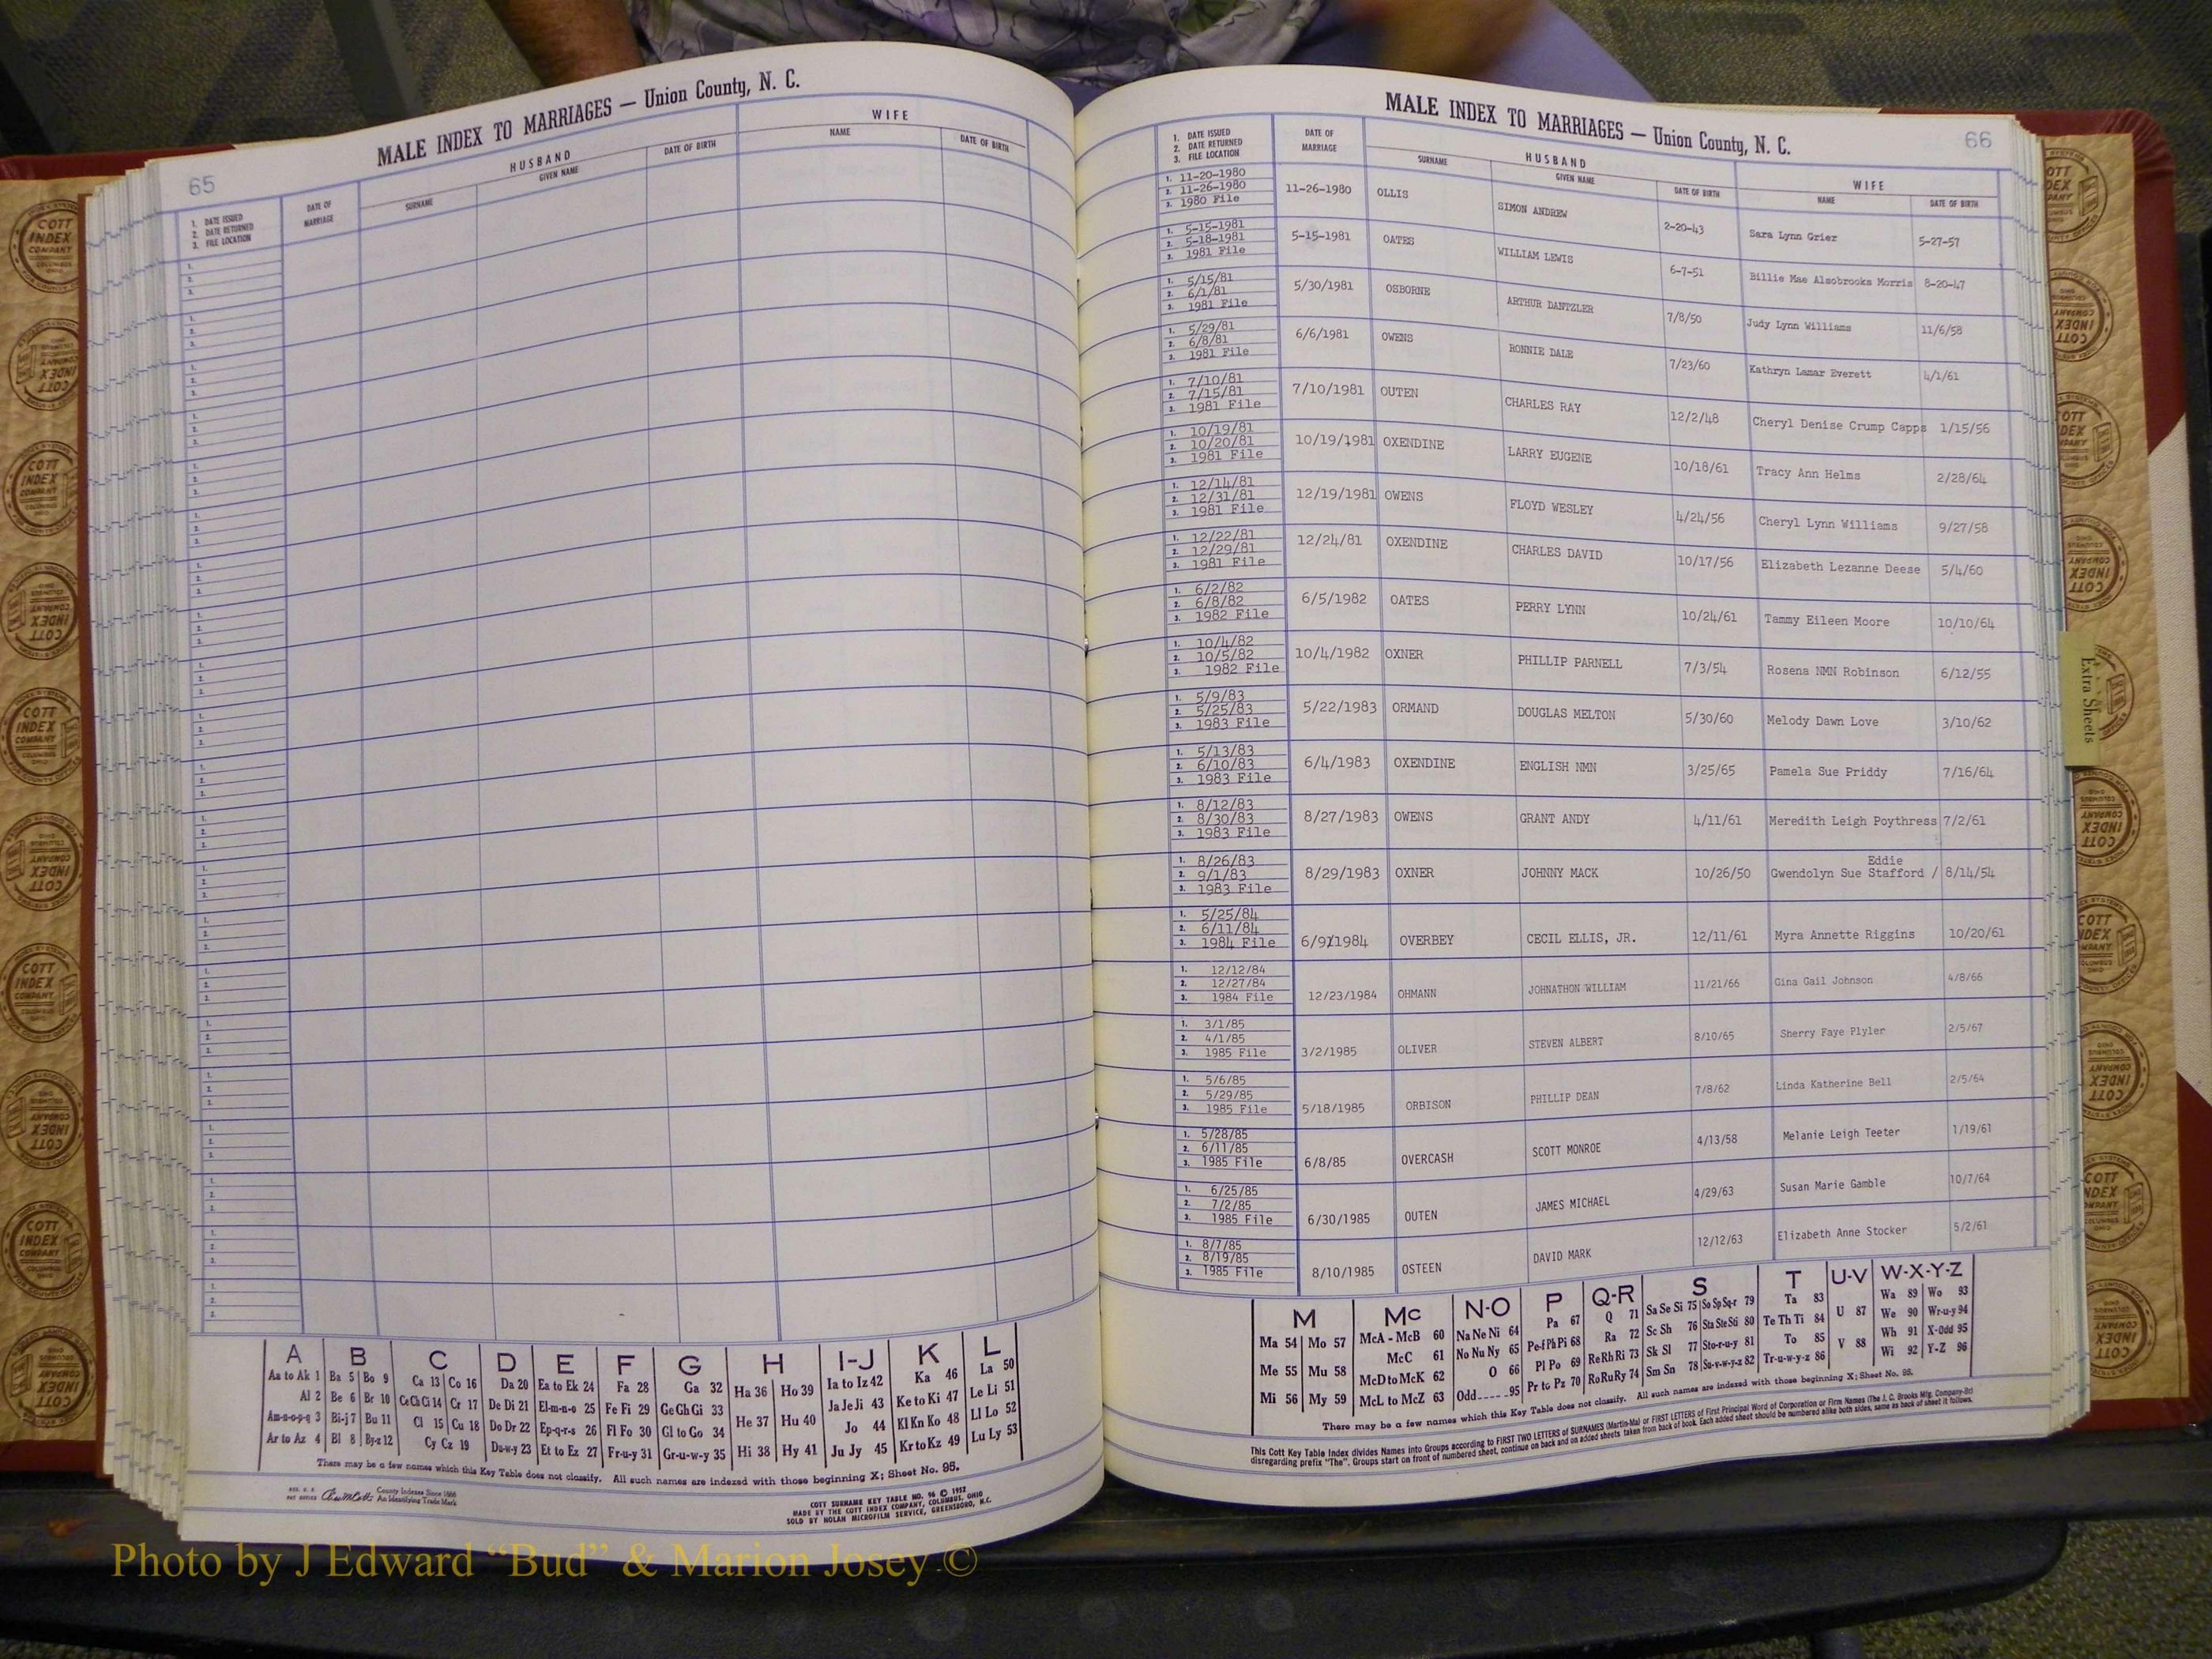 65
MALE INDEX TO MARRIAGES — Union County, N. C.
HUSBAND
WIFE
1. DATE ISSUED
2. DATE RETURNED
3. FILE LOCATION
DATE OF MARRIAGE
SURNAME
GIVEN NAME
DATE OF BIRTH
NAME
DATE OF BIRTH
A B C D E F G H I-J K L
Aa to Ak 1 Ba 5 Bo 9 Ca 13 Co 16 Da 20 Ea to Ek 24 Fa 28 Ga 32 Ha 36 Ho 39 Ia to Iz 42 Ka 46 La 50
Al 2 Be 6 Br 10 Ce Ch Ci 14 Cr 17 De Di 21 El-m-n-o 25 Fe Fi 29 Ge Gh Gi 33 Ja Je Ji 43 Ke to Ki 47 Le Li 51
Am-n-o-p-q 3 Bi-j 7 Bu 11 Cl 15 Cu 18 Do Dr 22 Ep-q-r-s 26 Fl Fo 30 Gl to Go 34 He 37 Hu 40 Jo 44 Kl Kn Ko 48 Ll Lo 52
Ar to Az 4 Bl 8 By-z 12 Cy Cz 19 Du-w-y 23 Et to Ez 27 Fr-u-y 31 Gr-u-w-y 35 Hi 38 Hy 41 Ju Jy 45 Kr to Kz 49 Lu Ly 53
There may be a few names which this Key Table does not classify. All such names are indexed with those beginning X; Sheet No. 95.
REG. U. S. PAT. OFFICE
County Indexes Since 1888
An Identifying Trade Mark
COTT SURNAME KEY TABLE NO. 96 © 1952
MADE BY THE COTT INDEX COMPANY, COLUMBUS, OHIO
SOLD BY NOLAN MICROFILM SERVICE, GREENSBORO, N.C.
MALE INDEX TO MARRIAGES — Union County, N. C.
66
1. DATE ISSUED
2. DATE RETURNED
3. FILE LOCATION
DATE OF MARRIAGE
HUSBAND
SURNAME
GIVEN NAME
DATE OF BIRTH
WIFE
NAME
DATE OF BIRTH
1. 11-20-1980
2. 11-26-1980
3. 1980 File
11-26-1980 OLLIS SIMON ANDREW 2-20-43 Sara Lynn Grier 5-27-57
1. 5-15-1981
2. 5-18-1981
3. 1981 File
5-15-1981 OATES WILLIAM LEWIS 6-7-51 Billie Mae Alsobrooks Morris 8-20-47
1. 5/15/81
2. 6/1/81
3. 1981 File
5/30/1981 OSBORNE ARTHUR DANTZLER 7/8/50 Judy Lynn Williams 11/6/58
1. 5/29/81
2. 6/8/81
3. 1981 File
6/6/1981 OWENS RONNIE DALE 7/23/60 Kathryn Lamar Everett 4/1/61
1. 7/10/81
2. 7/15/81
3. 1981 File
7/10/1981 OUTEN CHARLES RAY 12/2/48 Cheryl Denise Crump Capps 1/15/56
1. 10/19/81
2. 10/20/81
3. 1981 File
10/19/1981 OXENDINE LARRY EUGENE 10/18/61 Tracy Ann Helms 2/28/64
1. 12/14/81
2. 12/31/81
3. 1981 File
12/19/1981 OWENS FLOYD WESLEY 4/24/56 Cheryl Lynn Williams 9/27/58
1. 12/22/81
2. 12/29/81
3. 1981 File
12/24/81 OXENDINE CHARLES DAVID 10/17/56 Elizabeth Lezanne Deese 5/4/60
1. 6/2/82
2. 6/8/82
3. 1982 File
6/5/1982 OATES PERRY LYNN 10/24/61 Tammy Eileen Moore 10/10/64
1. 10/4/82
2. 10/5/82
3. 1982 File
10/4/1982 OXNER PHILLIP PARNELL 7/3/54 Rosena NMN Robinson 6/12/55
1. 5/9/83
2. 5/25/83
3. 1983 File
5/22/1983 ORMAND DOUGLAS MELTON 5/30/60 Melody Dawn Love 3/10/62
1. 5/13/83
2. 6/10/83
3. 1983 File
6/4/1983 OXENDINE ENGLISH NMN 3/25/65 Pamela Sue Priddy 7/16/64
1. 8/12/83
2. 8/30/83
3. 1983 File
8/27/1983 OWENS GRANT ANDY 4/11/61 Meredith Leigh Poythress 7/2/61
1. 8/26/83
2. 9/1/83
3. 1983 File
Eddie
8/29/1983 OXNER JOHNNY MACK 10/26/50 Gwendolyn Sue Stafford / 8/14/54
1. 5/25/84
2. 6/11/84
3. 1984 File
6/9/1984 OVERBEY CECIL ELLIS, JR. 12/11/61 Myra Annette Riggins 10/20/61
1. 12/12/84
2. 12/27/84
3. 1984 File
12/23/1984 OHMANN JOHNATHON WILLIAM 11/21/66 Gina Gail Johnson 4/8/66
1. 3/1/85
2. 4/1/85
3. 1985 File
3/2/1985 OLIVER STEVEN ALBERT 8/10/65 Sherry Faye Plyler 2/5/67
1. 5/6/85
2. 5/29/85
3. 1985 File
5/18/1985 ORBISON PHILLIP DEAN 7/8/62 Linda Katherine Bell 2/5/64
1. 5/28/85
2. 6/11/85
3. 1985 File
6/8/85 OVERCASH SCOTT MONROE 4/13/58 Melanie Leigh Teeter 1/19/61
1. 6/25/85
2. 7/2/85
3. 1985 File
6/30/1985 OUTEN JAMES MICHAEL 4/29/63 Susan Marie Gamble 10/7/64
1. 8/7/85
2. 8/19/85
3. 1985 File
8/10/1985 OSTEEN DAVID MARK 12/12/63 Elizabeth Anne Stocker 5/2/61
M Mc N-O P Q-R S T U-V W-X-Y-Z
Ma 54 Mo 57 McA - McB 60 Na Ne Ni 64 Pa 67 Q 71 Sa Se Si 75 So Sp Sq-r 79 Ta 83 U 87 Wa 89 Wo 93
Me 55 Mu 58 McC 61 No Nu Ny 65 Pe-f Ph Pi 68 Ra 72 Sc Sh 76 Sta Ste Sti 80 Te Th Ti 84 We 90 Wr-u-y 94
McD to McK 62 O 66 Pl Po 69 Re Rh Ri 73 Sk Sl 77 Sto-r-u-y 81 To 85 V 88 Wh 91 X-Odd 95
Mi 56 My 59 McL to McZ 63 Odd 95 Pr to Pz 70 Ro Ru Ry 74 Sm Sn 78 Su-v-w-y-z 82 Tr-u-w-y-z 86 Wi 92 Y-Z 96
There may be a few names which this Key Table does not classify. All such names are indexed with those beginning X; Sheet No. 95.
This Cott Key Table Index divides Names into Groups according to FIRST TWO LETTERS of SURNAMES (Martin-Ma) or FIRST LETTERS of First Principal Word of Corporation or Firm Names (The J. C. Brooks Mfg. Company-Br)
disregarding prefix "The". Groups start on front of numbered sheet, continue on back and on added sheets taken from back of book. Each added sheet should be numbered alike both sides, same as back of sheet it follows.
Extra Sheets
COTT INDEX COMPANY COLUMBUS OHIO
Photo by J Edward “Bud” & Marion Josey ©